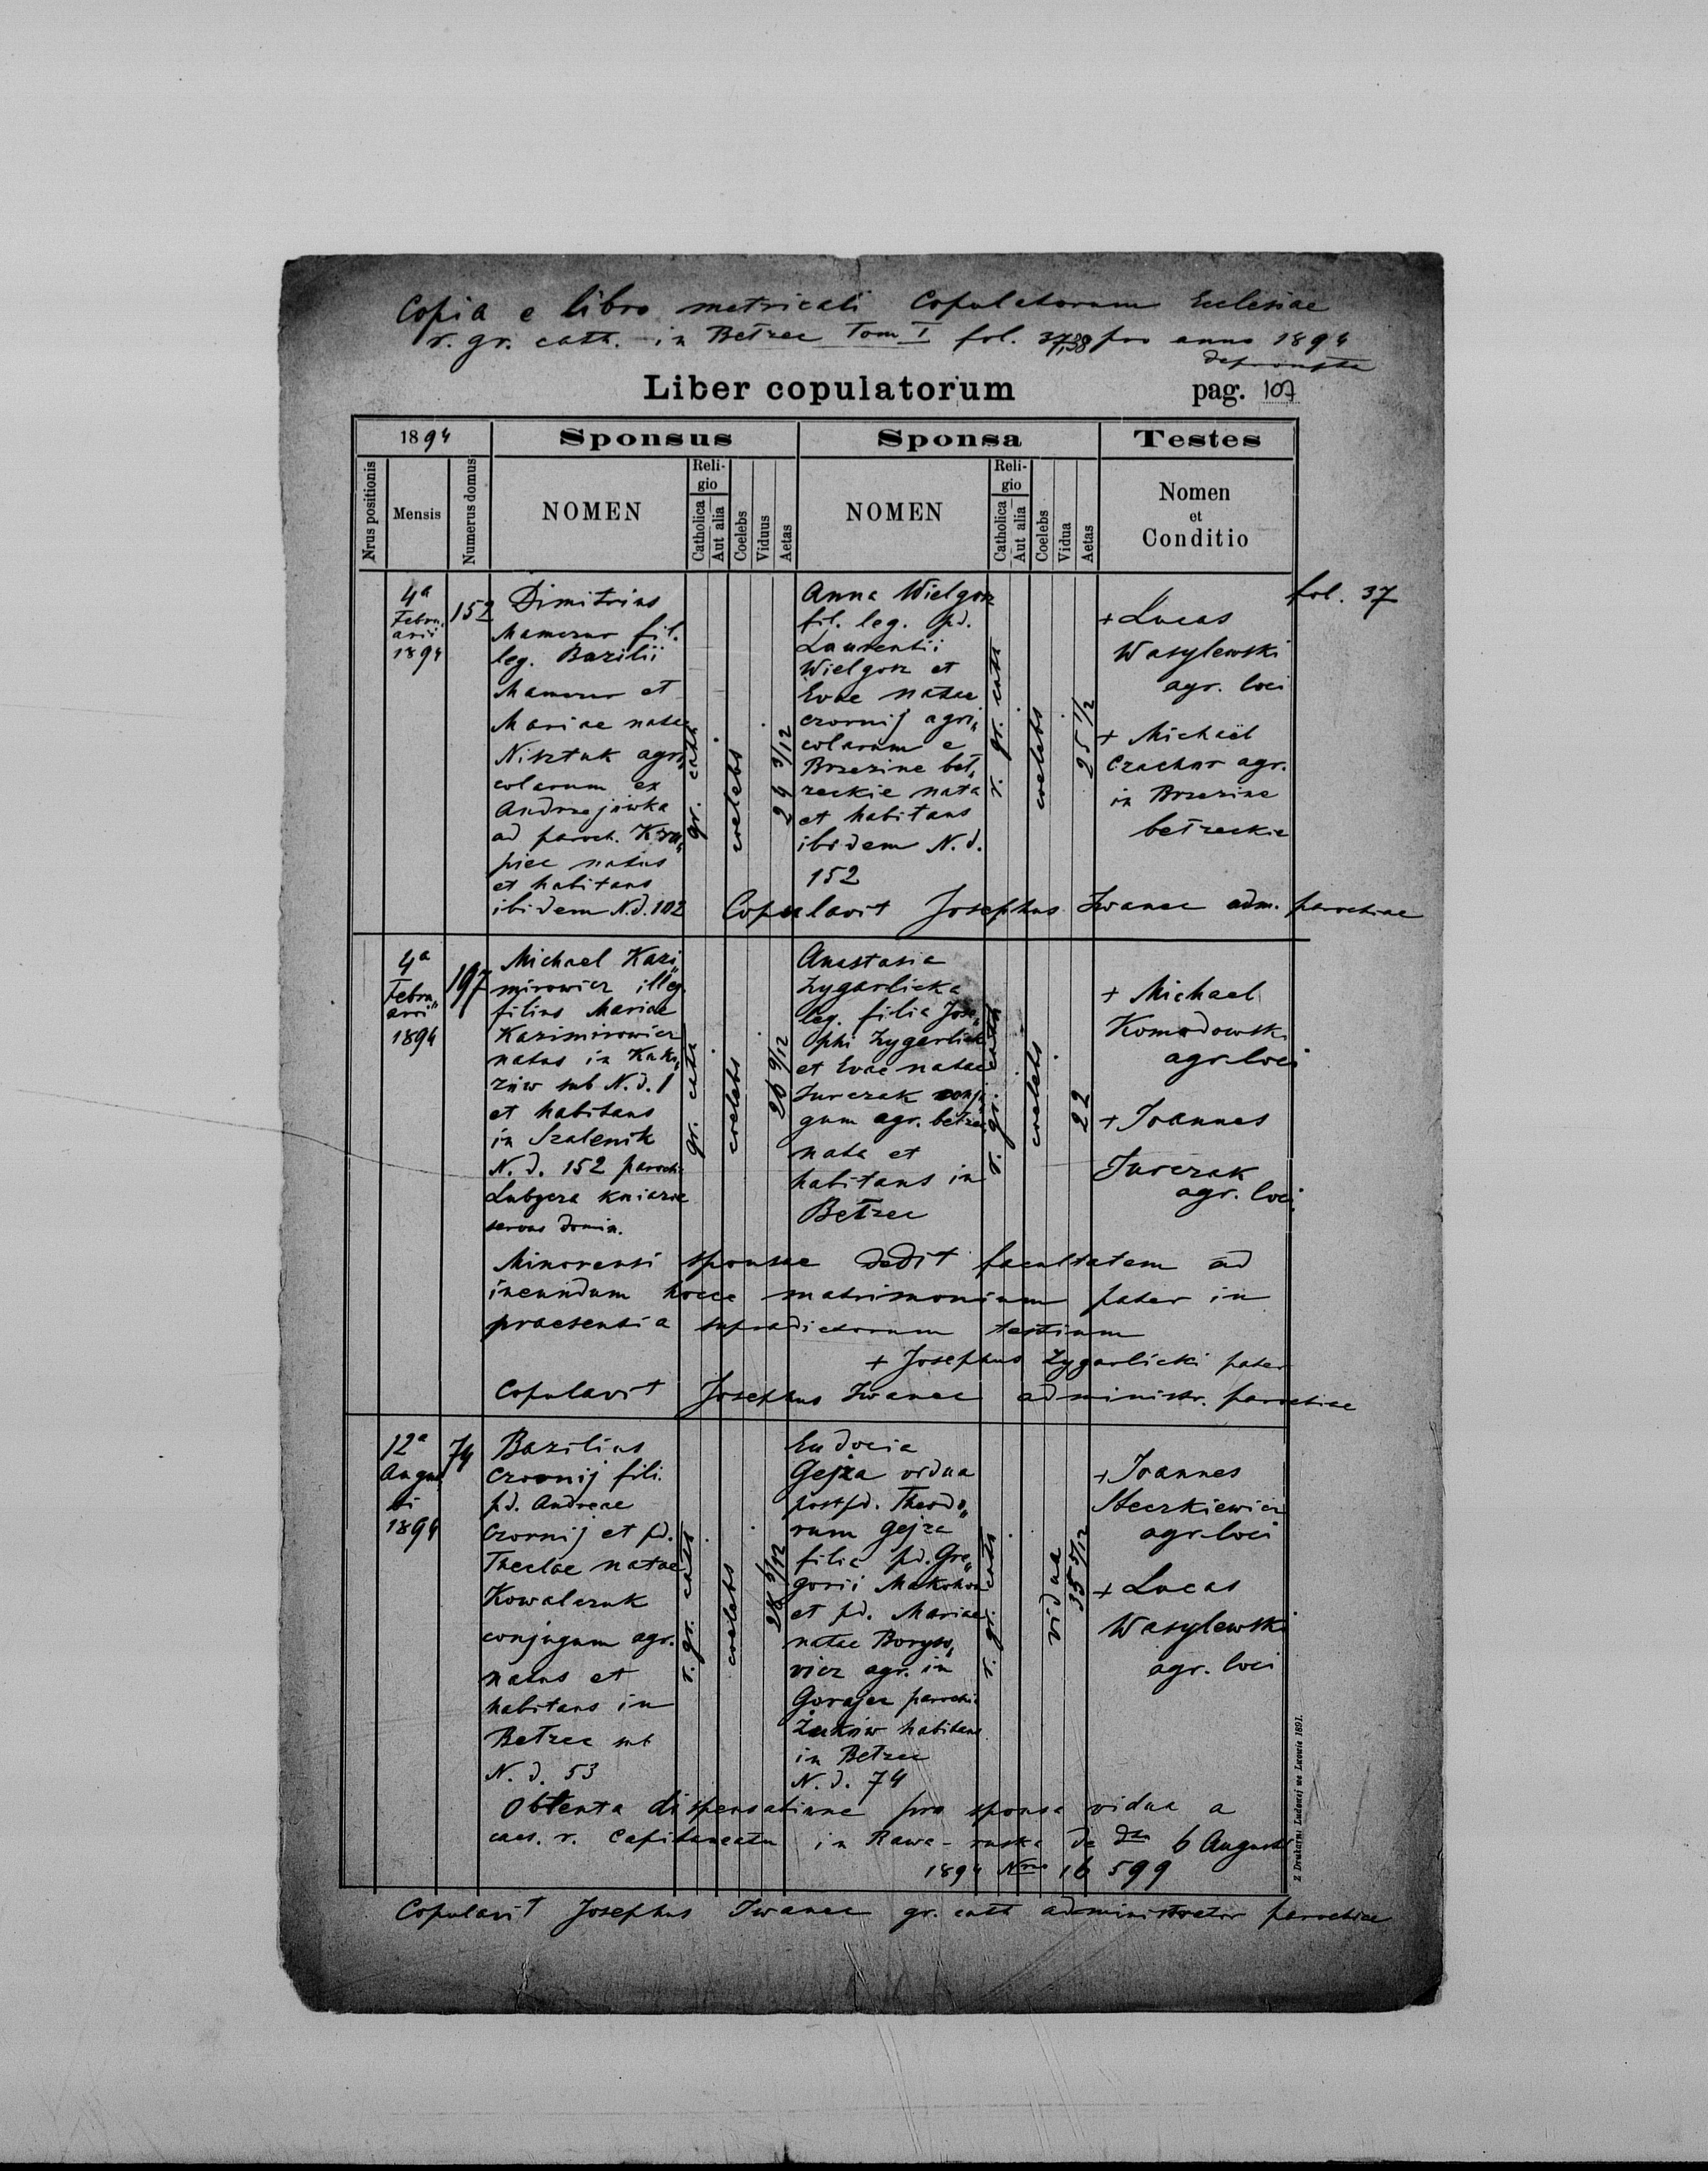 Copia e libro metricali Copulatorum Ecclesiae
r. gr. cath. in Bełzec Tom I fol. 37/38 pro anno 1894
deprompta
Liber copulatorum pag. 107
1894 Sponsus Sponsa Testes
Nrus positionis
Mensis
Numerus domus
NOMEN
Religio
Catholica
Aut alia
Coelebs
Viduus
Aetas
NOMEN
Religio
Catholica
Aut alia
Coelebs
Vidua
Aetas
Nomen
et
Conditio
fol. 37
4a
Febru„
arii
1894
152
Dimitrius
Mamczur fil.
leg. Bazilii
Mamczur et
Mariae natae
Nisztuk agri„
colarum ex
Andrzejówka
ad paroch. Krzy„
piec natus
et habitans
ibidem N.d. 102
gr. cath
coelebs
24 3/12
Anna Wielgosz
fil. leg. pd.
Laurentii
Wielgosz et
Evae natae
Czornij agri„
colarum e
Brzezine beł„
zeckie nata
et habitans
ibidem N. d.
152
r. gr. cath
coelebs
25 1/2
+ Lucas
Wasylewski
agr. loci
+ Michaël
Czachor agr.
in Brzezine
bełzeckie
Copulavit Josephus Iwanec adm. parochiae
4a
Febru„
arii
1894
197
Michael Kazi„
mirowicz illeg.
filius Mariae
Kazimirowicz
natus in
sub N. d. 1
et habitans
in Szalenik
N. d. 152 paroch.
Lubycza kniazie
servus domin.
gr. cath
coelebs
26 9/12
Anastasia
Zygarlicka
leg. filia Jose„
phi Zygarlicki
et Evae natae
Jurczak conju„
gum agr. bełzec
nata et
habitans in
Bełzec
r. gr. cath
coelebs
22
+ Michael
Komodowski
agr. loci
+ Joannes
Jurczak
agr. loci
Minorensi sponsae dedit facultatem ad
ineundum hocce matrimonium pater in
praesentia supradictorum testium
+ Josephus Zygarlicki pater
Copulavit Josephus Iwanec administr. parochiae
12a
Augus
ti
1894
74
Bazilius
Czornij fili.
pd. Andreae
Czornij et pd.
Theclae natae
Kowalczuk
conjugum agr.
natus et
habitans in
Bełzec sub
N. d. 53
r. gr. cath
coelebs
28 5/12
Eudocia
Gejza vidua
post pd. Theodo„
rum Gejza
filia pd. Gre„
gorii Makohon
et pd. Mariae
natae Boryso„
vicz agr. in
Gorajec parochia
Żuków habitans
in Bełzec
N. d. 74
r. gr. cath
vidua
35 5/12
+ Joannes
Steczkiewicz
agr. loci
+ Lucas
Wasylewski
agr. loci
Obtenta dispensatione pro sponsa vidua a
caes. r. Capitaneatu in Rawa-ruska de dto 6 Augusti
1894 Nro 16 599
Copulavit Josephus Iwanec gr. cath administrator parochiae
Z Drukarni Ludowej we Lwowie 1891.